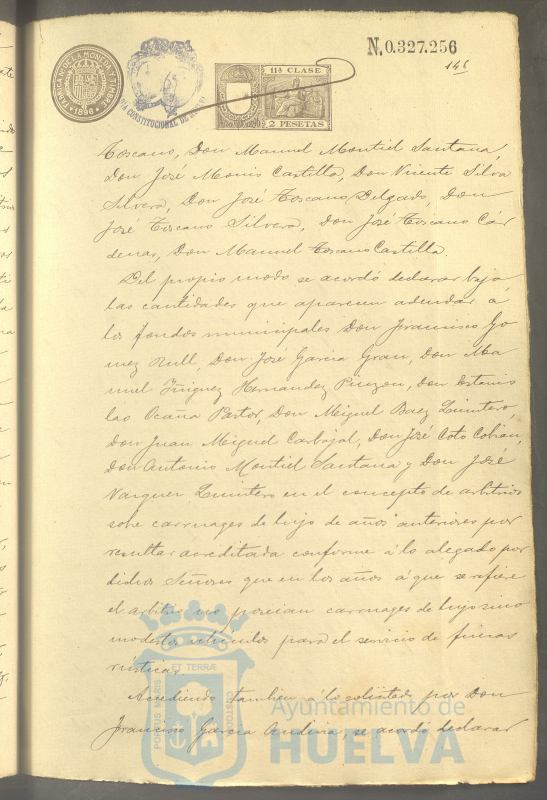 N.0.327.256
146
FABRICA N. DE LA MONEDA Y TIMBRE
1896
11ª CLASE
2 PESETAS
Toscano, Don Manuel Montiel Santana,
Don José Monis Castilla, Don Vicente Silva
Silvera, Don José Toscano Delgado, Don
José Toscano Silvera, Don José Toscano Cár
denas, Don Manuel Toscano Castilla.
Del propio modo se acordó declarar baja
las cantidades que aparecen adeudar á
los fondos municipales Don Francisco Go
mez Rull, Don José Garcia Gran, Don Ma
nuel Iñiguez Hernandez Pinzon, don Estanis
lao Ocaña Pastor, Don Miguel Baez Quintero,
Don Juan Miguel Carbajal, Don José Coto Cobian,
Don Antonio Montiel Santana y Don José
Vazquez Quintero en el concepto de arbitrios
sobre carruages de lujo de años anteriores por
resultar acreditada conforme á lo alegado por
didhos Señores que en los años á que se refiere
el arbitrio no poseian carruages de lujo sino
modestos vehiculos para el servicio de fincas
rústicas.
Accediendo tambien á lo solicitado por Don
Francisco Garcia Andina, se acordó declarar
PORTUS MARIS ET TERRÆ CUSTODIA
Ayuntamiento de
HUELVA